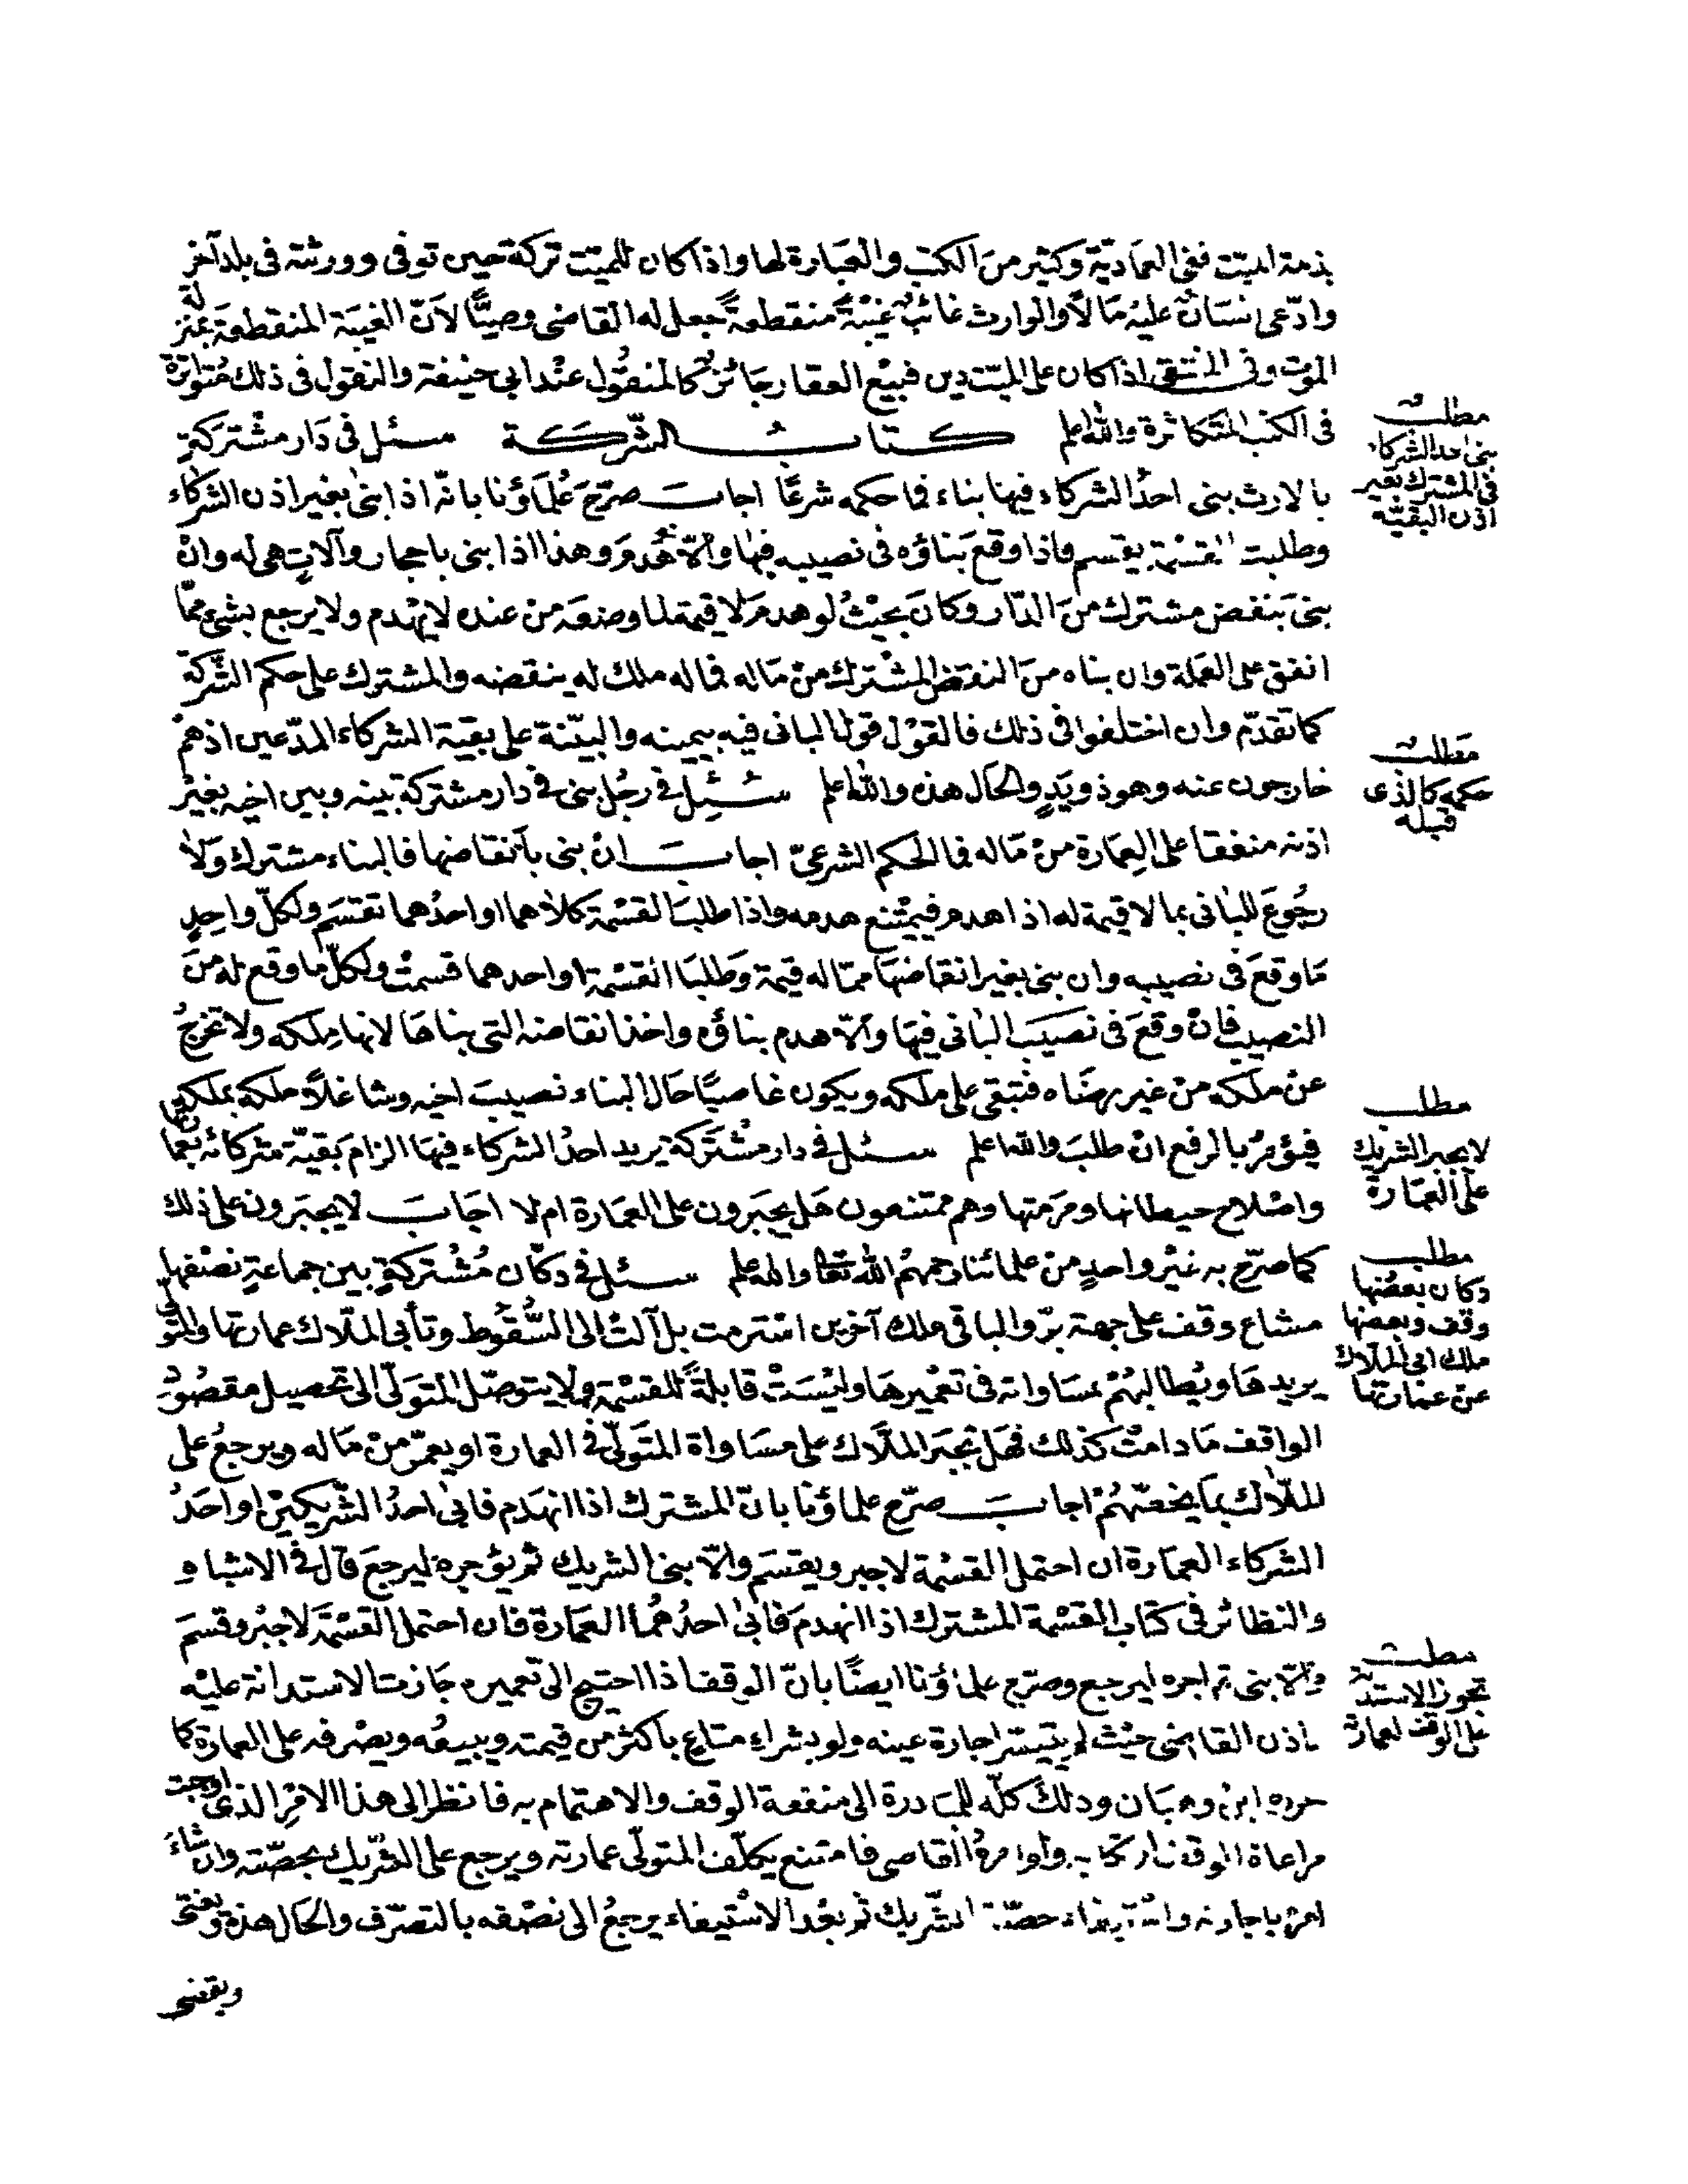 بذمة الميت ففى العمادية وكثير من الكتب والعبارة لها واذا كان للميت تركة حين توفى وورثته فى بلد آخر
وادعى انسان عليه مالا والوارث غائب غيبة منقطعة جعل له القاضى وصيا لان الغيبة المنقطعة بمنزلة
الموت وفى المنتقى اذا كان على الميت دين فبيع العقار جائز كالمنقول عند ابى حنيفة والنقول فى ذلك متواترة
فى الكتب المتكاثرة والله اعلم كتاب الشركة سئل فى دار مشتركة
مطلب
بنى احد الشركاء
فى المشترك بغير
اذن البقية
بالارث بنى احد الشركاء فيها بناء فما حكمه شرعا اجاب صرح علماؤنا بانه اذا بنى بغير اذن الشركاء
وطلبت القسمة يقسم فاذا وقع بناؤه فى نصيبه فبها والا هدم وهذا اذا بنى باحجار وآلات هى له وان
بنى بنقض مشترك من الدار وكان بحيث لو هدم لا قيمة لما وضعه من عنده لا يهدم ولا يرجع بشئ مما
انفق على العملة وان بناه من النقض المشترك من ماله فما له ملك له ينقضه والمشترك على حكم الشركة
كما تقدم وان اختلفوا فى ذلك فالقول قول البانى فيه بيمينه والبينة على بقية الشركاء المدعين اذ هم
مطلب
حكمه كالذى
قبله
خارجون عنه وهو ذو يد والحال هذه والله اعلم سئل فى رجل بنى فى دار مشتركة بينه وبين اخيه بغير
اذنه منفقا على العمارة من ماله فما الحكم الشرعى اجاب ان بنى بانقاضها فالبناء مشترك ولا
رجوع للبانى بما لا قيمة له اذا هدم فيمتنع هدمه واذا طلبا القسمة كلاهما او احدهما تقتسم ولكل واحد
ما وقع فى نصيبه وان بنى بغير انقاضها مما له قيمة وطلبا القسمة او احدهما قسمت ولكل ما وقع له من
النصيب فان وقع فى نصيب البانى فبها والا هدم بناؤه واخذ انقاضه التى بناها لانها ملكه ولا تخرج
عن ملكه من غير رضاه فتبقى على ملكه ويكون غاصبا حال البناء نصيب اخيه وشاغلا ملكه بملكه
مطلب
لا يجبر الشريك
على العمارة
فيؤمر بالرفع ان طلب والله اعلم سئل فى دار مشتركة يريد احد الشركاء فيها الزام بقية شركائه بعمارتها
واصلاح حيطانها ومرمتها وهم ممتنعون هل يجبرون على العمارة ام لا اجاب لا يجبرون على ذلك
كما صرح به غير واحد من علمائنا رحمهم الله تعالى والله اعلم سئل فى دكان مشتركة بين جماعة نصفها
مطلب
دكان بعضها
وقف وبعضها
ملك ابى الملاك
عن عمارتها
مشاع وقف على جهة بر والباقى ملك آخرين استرمت بل آلت الى السقوط وتأبى الملاك عمارتها والمتولى
يريدها ويطالبهم بمساواته فى تعميرها وليست قابلة للقسمة ولا يتوصل المتولى الى تحصيل مقصود
الواقف ما دامت كذلك فهل تجبر الملاك على مساواة المتولى فى العمارة او يعمر من ماله ويرجع على
الملاك بما يخصهم اجاب صرح علماؤنا بان المشترك اذا انهدم فابى احد الشريكين او احد
الشركاء العمارة ان احتمل القسمة لا جبر ويقسم والا بنى الشريك ثم يؤجره ليرجع قال فى الاشباه
والنظائر فى كتاب القسمة المشترك اذا انهدم فابى احدهما العمارة فان احتمل القسمة لا جبر وقسم
مطلب
تجوز الاستدانة
على الوقف لعمارته
والا بنى ثم اجره ليرجع وصرح علماؤنا ايضا بان الوقف اذا احتيج الى تعميره جازت الاستدانة عليه
باذن القاضى حيث لم يتيسر اجارة عينه ولو بشراء متاع باكثر من قيمته ويبيعه ويصرفه على العمارة كما
حرره ابن وهبان وذلك كله للمبادرة الى منفعة الوقف والاهتمام به فانظر الى هذا الامر الذى اوجبت
مراعاة الوقف ارتكابه ولو امره القاضى فامتنع يكلف المتولى عمارته ويرجع على الشريك بحصته وان شاء
امره باجارته الشريك ثم بعد الاستيفاء يرجع الى نصفه بالتصرف والحال هذه ويفتى
ويقضى